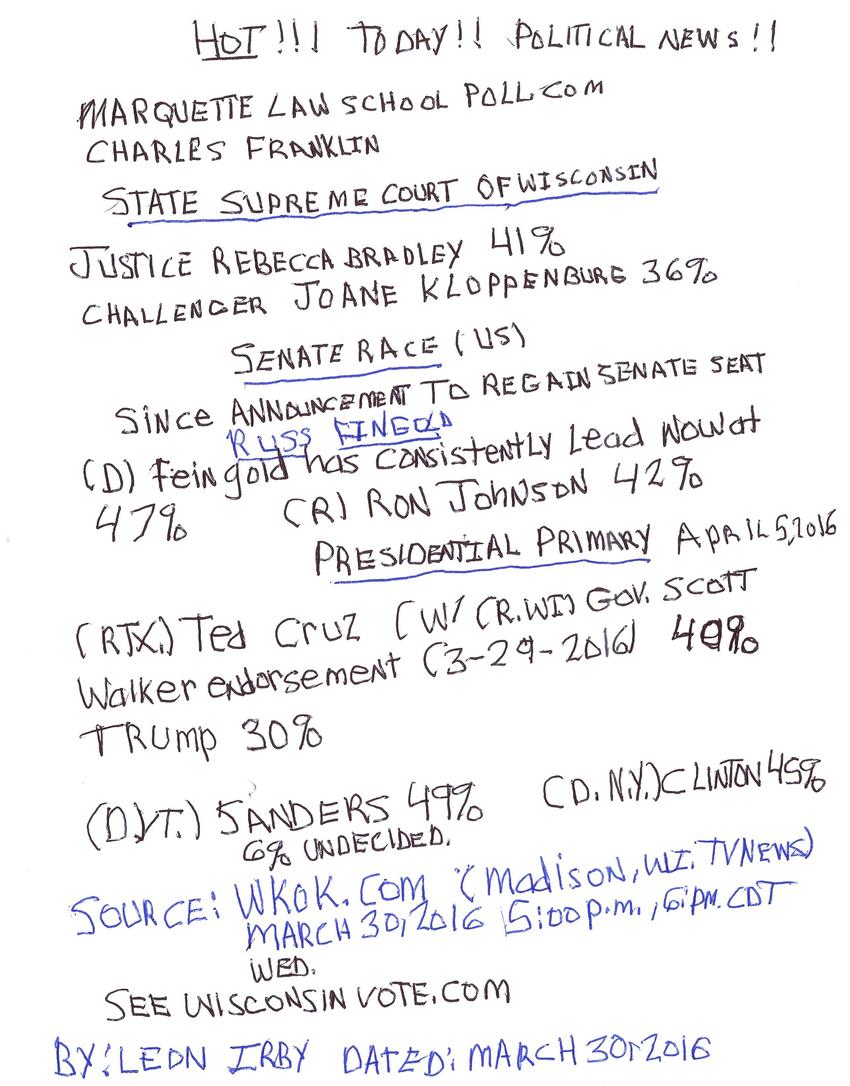 HOT!!! TODAY!! POLITICAL NEWS!!
MARQUETTE LAW SCHOOL POLL.COM
CHARLES FRANKLIN
STATE SUPREME COURT OF WISCONSIN
JUSTICE REBECCA BRADLEY 41%
CHALLENGER JOANE KLOPPENBURG 36%
SENATE RACE (US)
SINCE ANNOUNCEMENT TO REGAIN SENATE SEAT
RUSS FINGOLD
(D) Feingold has CONSISTENTLY Lead NOW at
47% (R) RON JOHNSON 42%
PRESIDENTIAL PRIMARY APRIL 5,2016
(RTX.) Ted CRUZ (W/ (R.WI) GOV. SCOTT
Walker endorsement (3-29-2016) 40%
TRUMP 30%
(D.VT.) SANDERS 49% (D. N.Y.) CLINTON 45%
6% UNDECIDED.
SOURCE: WKOK.COM (Madison, WI. TV NEWS)
MARCH 30, 2016 5:00 P.M., 6: PM. CDT
WED.
SEE WISCONSIN VOTE.COM
BY: LEON IRBY DATED: MARCH 30, 2016